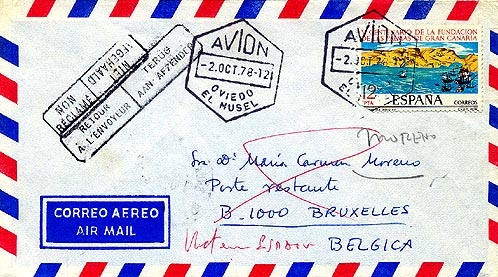 NON
RÉCLAMÉ
NIET
AFGEHAALD
RETOUR
A L'ENVOYEUR
TERUG
AAN AFZENDER
AVION
-2.OCT.78-12
OVIEDO
EL MUSEL
AVION
V CENTENARIO DE LA FUNDACION
DE LAS PALMAS DE GRAN CANARIA
12
PTA
ESPAÑA
CORREOS
Sra Dª María Carmen Moreno
Poste restante
B-1000 BRUXELLES
BELGICA
CORREO AEREO
AIR MAIL